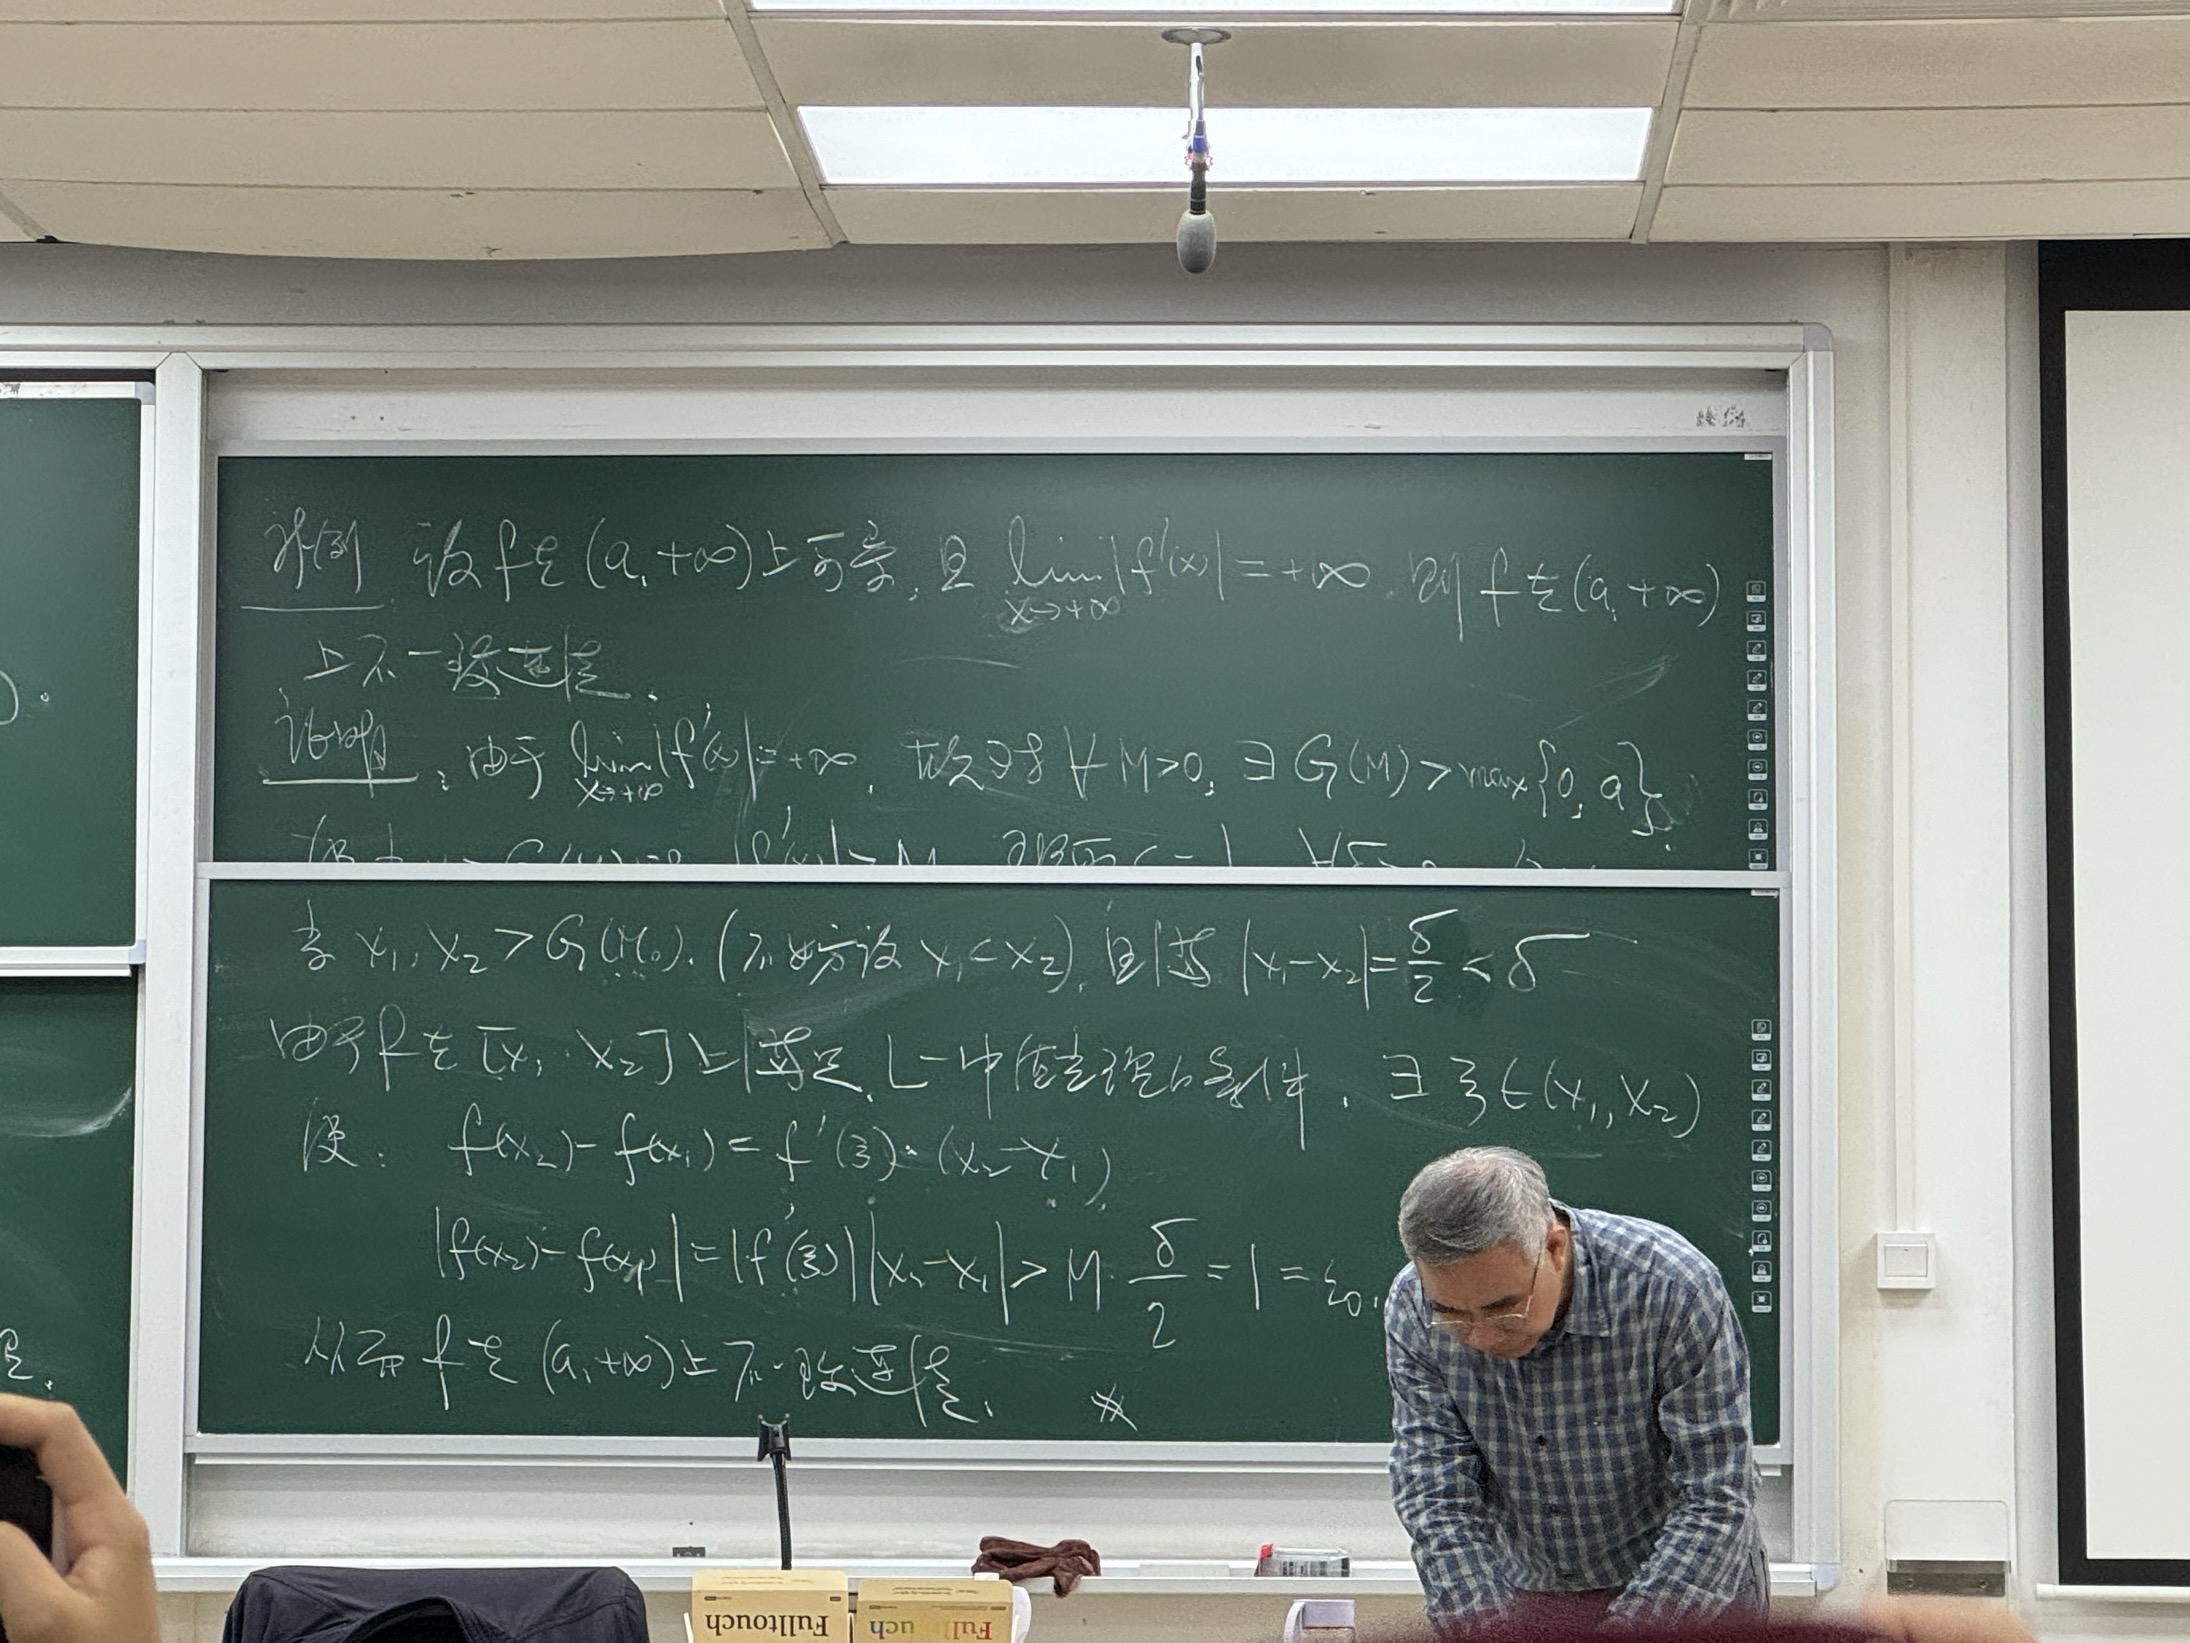 补例 设f在(a,+∞)上可导,且 lim x→+∞ |f'(x)|=+∞.则f在(a,+∞)
上不一致连续.
证明:由于 lim x→+∞ |f'(x)|=+∞,故对∀M>0,∃G(M)>max{0,a},
x₁,x₂>G(M₀).(不妨设x₁<x₂),且满|x₁-x₂|=δ/2<δ
由于f在[x₁,x₂]上满足L-中值定理的条件.∃ξ∈(x₁,x₂)
使: f(x₂)-f(x₁)=f'(ξ)·(x₂-x₁)
|f(x₂)-f(x₁)|=|f'(ξ)||x₂-x₁|>M·δ/2=1=ε₀.
从而f在(a,+∞)上不一致连续.
Fulltouch
Fulltouch